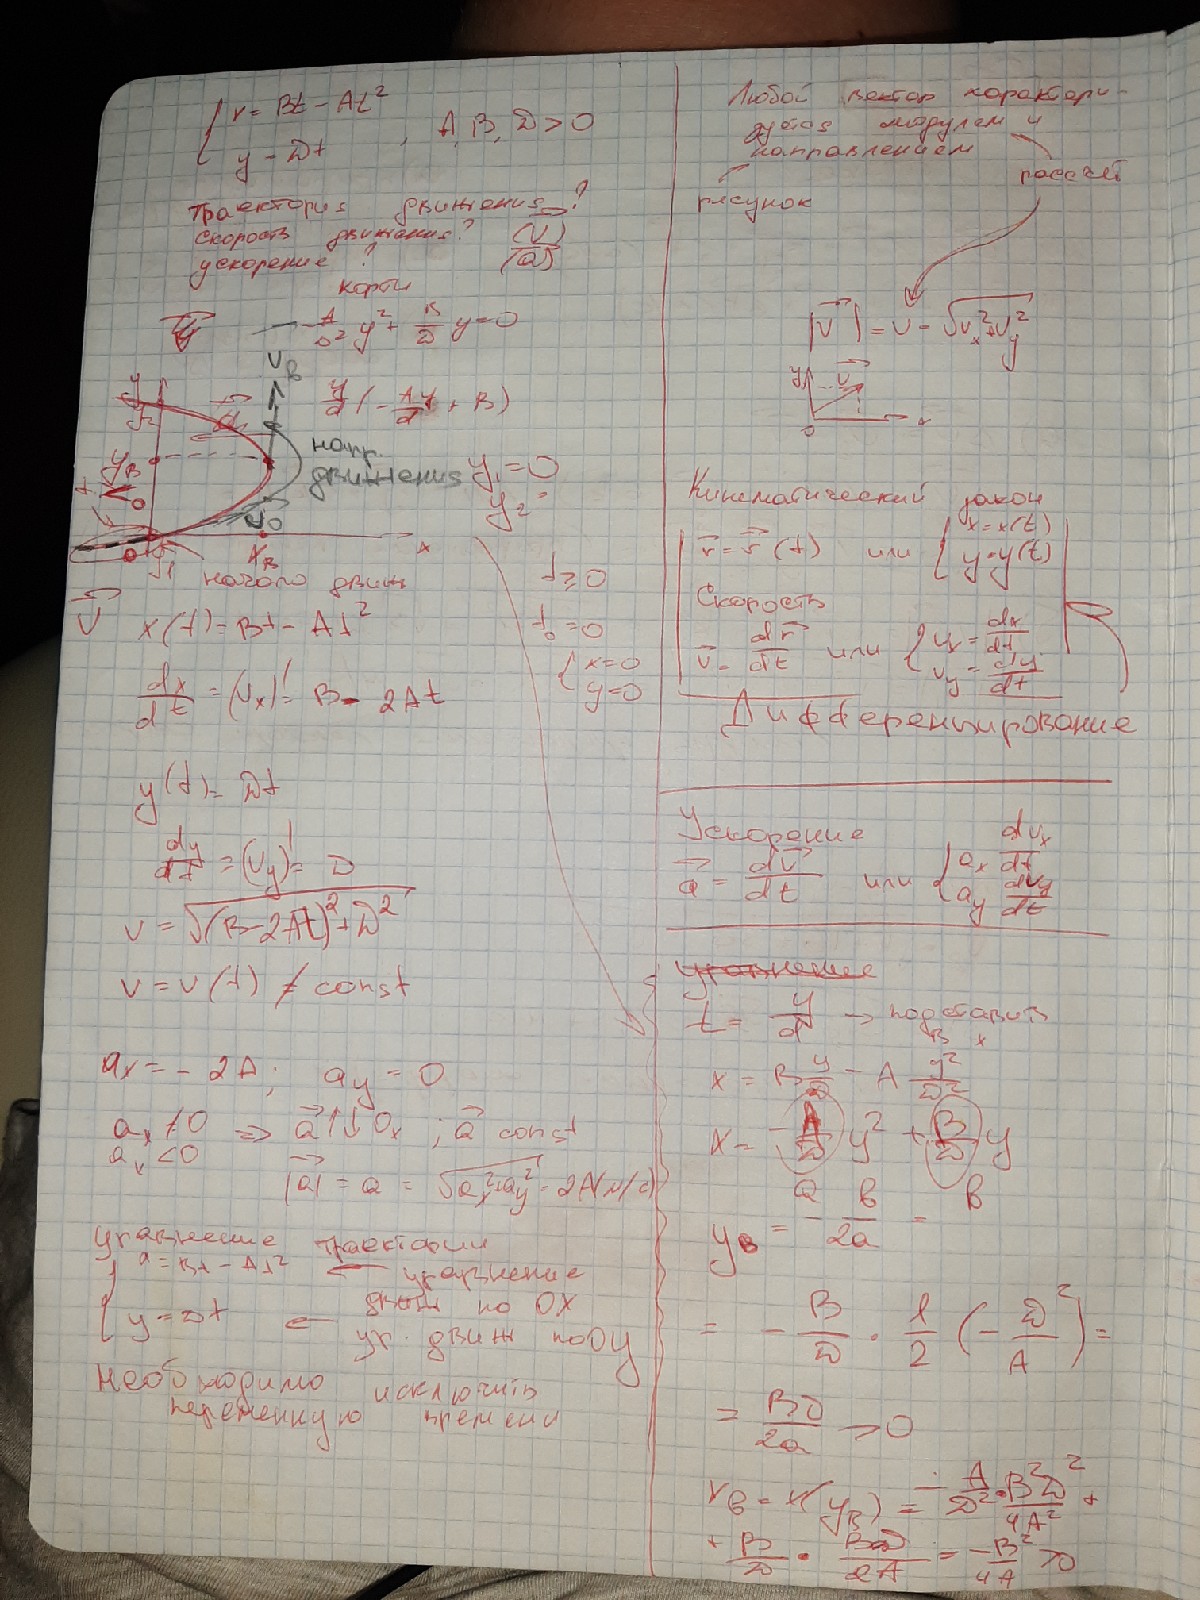 x = Bt - At²
y - Dt , A, B, D > 0
Траектория движения - ?
Скорость движения? (V)
ускорение ? (a)
корни
- A/D² y² + B/D y = 0
y/d (- Ay/d + B)
y₁ = 0
y₂ =
y
y₂
a
V_B
y_B
напр.
движения
V₀
0
y₁
x_B
x
начало движ
t ≥ 0
t₀ = 0
{ x = 0
y = 0
V
x(t) = Bt - At²
dx/dt = (Vx)' = B - 2At
y(t) = Dt
dy/dt = (Vy)' = D
v = √(B - 2At)² + D²
v = v(t) ≠ const
ax = - 2A; ay = 0
ax ≠ 0 => a ↑↓ Ox ; a const
ax < 0
|a| = a = √ax² + ay² = 2A (м/с)
уравнение траектории
x = Bt - At² ← уравнение
движ по OX
y = Dt ← ур. движ по Oy
Необходимо исключить
переменную времени
Любой вектор характери-
зуется модулем и
направлением
рисунок
рассчёт
|V| = v - √vx² + vy²
y
v
0
x
Кинематический закон
r = r (t) или { x = x(t)
y = y(t)
Скорость
v = dr/dt или { vx = dx/dt
vy = dy/dt
Дифференцирование
Ускорение
a = dv/dt или { ax dvx/dt
ay dvy/dt
уравнение
t = y/d → подставить
в x
x = B y/D - A y²/D²
x = - A/D² y² + B/D y
a в
y_B = - B/2a =
= - B/D · 1/2 (- D²/A) =
= BD/2a > 0
x_B = x(y_B) = - A/D² · B²D²/4A² +
+ B/D · BD/2A = - B²/4A > 0